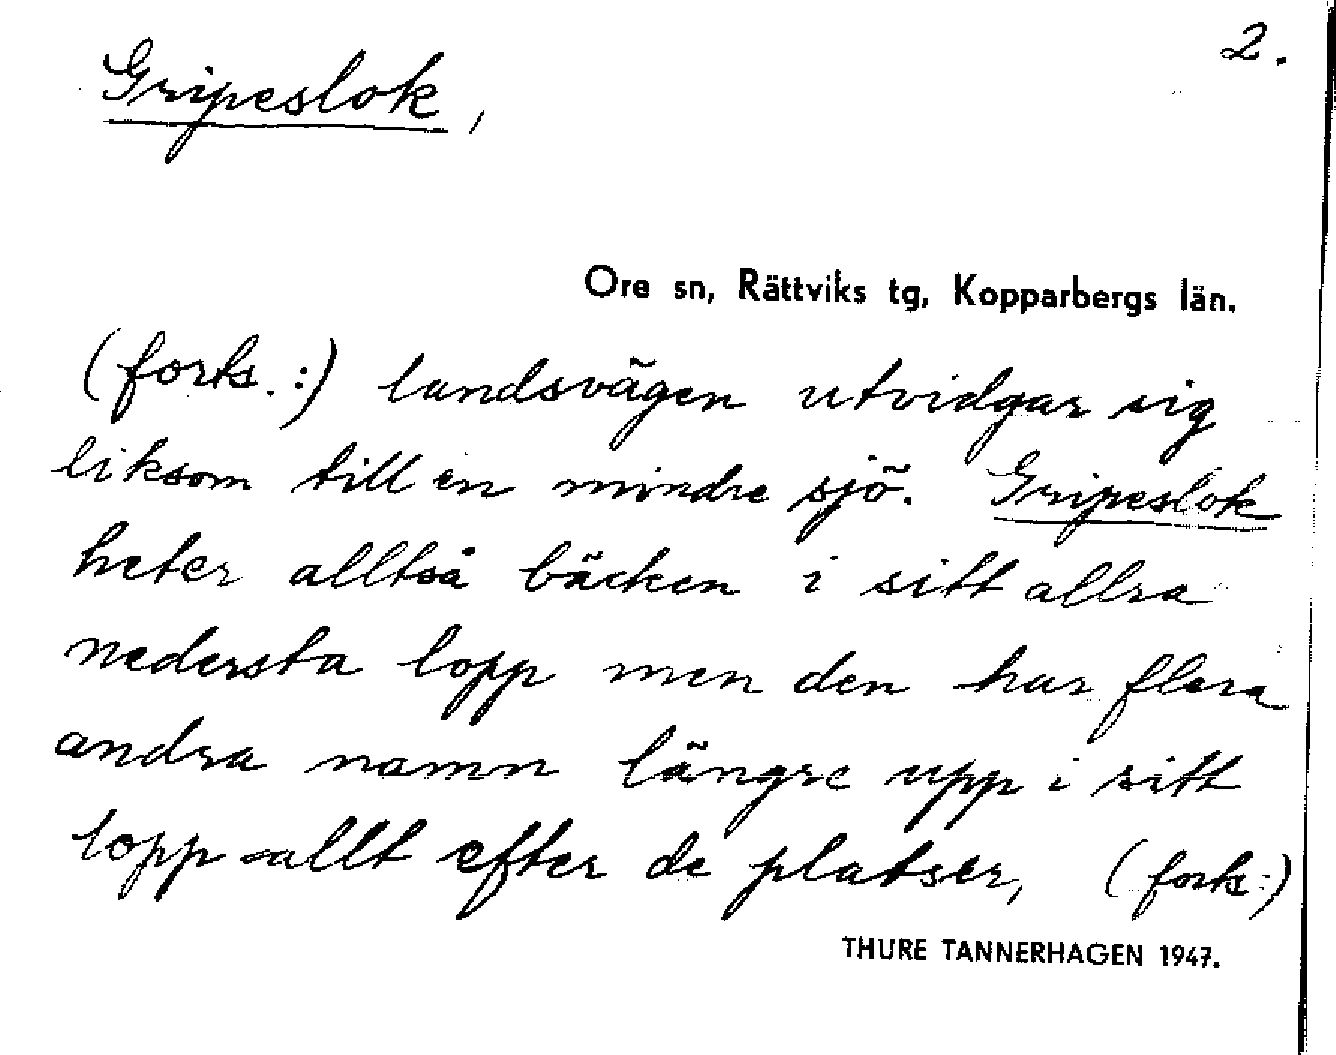 2.
Gripeslok,
Ore sn, Rättviks tg, Kopparbergs län.
(forts.:) landsvägen utvidgar sig
liksom till en mindre sjö. Gripeslok
heter alltså bäcken i sitt allra
nedersta lopp men den har flera
andra namn längre upp i sitt
lopp allt efter de platser, (forts:)
THURE TANNERHAGEN 1947.